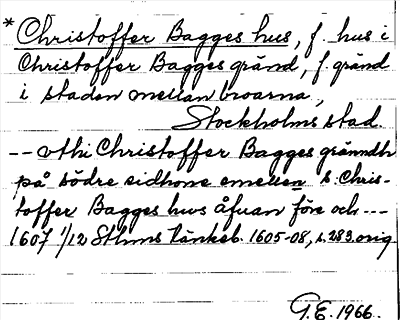 * Christoffer Bagges hus, f. hus i
Christoffer Bagges gränd, f. gränd
i staden mellan broarna,
Stockholms stad.
-- vthi Christoffer Bagges gränndh
på södre sidhone emellen s. Chris-
toffer Bagges hus åfuan före och ---
1607 1/12 Sthms tänkeb. 1605-08, s. 283. orig.
G.E. 1966.